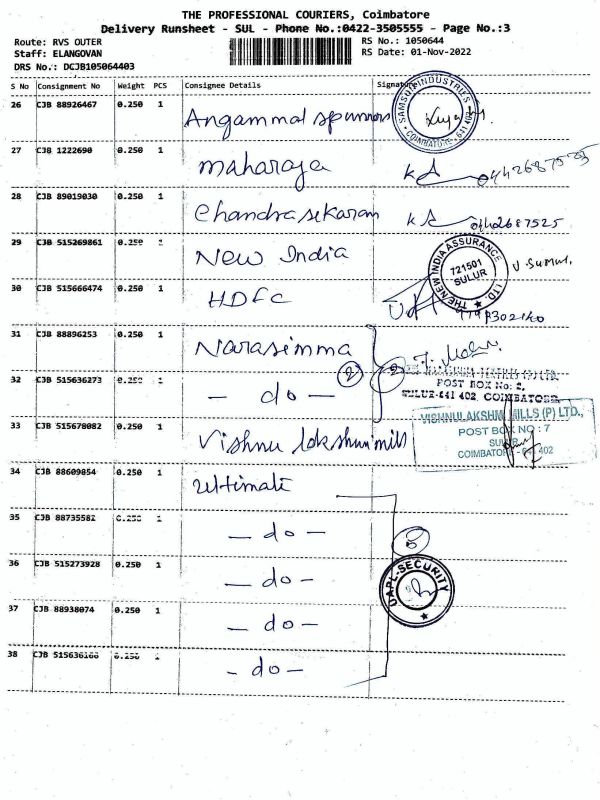 THE PROFESSIONAL COURIERS, Coimbatore
Delivery Runsheet - SUL - Phone No.:0422-3505555 - Page No.:3
Route: RVS OUTER
Staff: ELANGOVAN
DRS No.: DCJB105064403
RS No.: 1050644
RS Date: 01-Nov-2022
S No Consignment No Weight PCS Consignee Details Signature
26 CJB 88926467 0.250 1 Angammal spinners
SAMSUN INDUSTRIES COIMBATORE - 641 402
27 CJB 1222690 0.250 1 maharaja KA
28 CJB 89019030 0.250 1 Chandrasekaram KA 04142687525
29 CJB 515269861 0.250 1 New India
THE NEW INDIA ASSURANCE LTD. 721501 SULUR
30 CJB 515666474 0.250 1 HDFC
31 CJB 88896253 0.250 1 Narasimma
32 CJB 515636273 0.250 1 - do - 2 2
POST BOX No: 2,
SULUR-641 402, COIMBATORE
33 CJB 515678082 0.250 1 Vishnu lakshmi mills
VISHNULAKSHMI MILLS (P) LTD.,
POST BOX NO : 7
SULUR
COIMBATORE - 641 402
34 CJB 88609854 0.250 1 Ultimate
35 CJB 88735582 0.250 1 - do - 5
36 CJB 515273928 0.250 1 - do -
UAPL-SECURITY
37 CJB 88938074 0.250 1 - do -
38 CJB 515636166 0.250 1 - do -